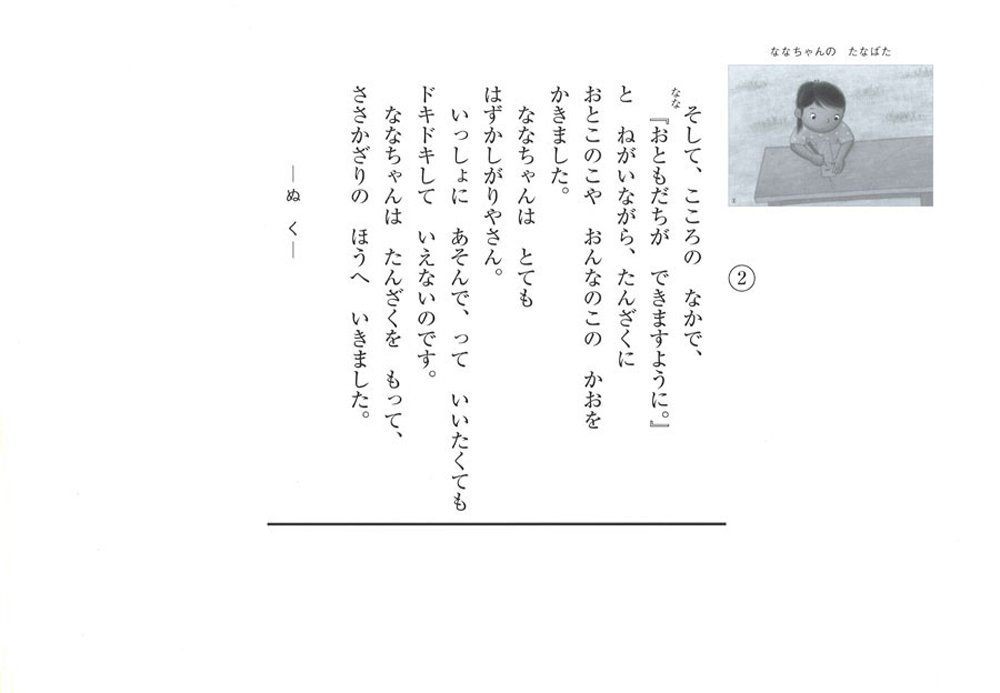 ななちゃんの　たなばた
②
そして、こころの　なかで、
なな
『おともだちが　できますように。』
と　ねがいながら、たんざくに
おとこのこや　おんなのこの　かおを
かきました。
ななちゃんは　とても
はずかしがりやさん。
いっしょに　あそんで、って　いいたくても
ドキドキして　いえないのです。
ななちゃんは　たんざくを　もって、
ささかざりの　ほうへ　いきました。
―ぬく―